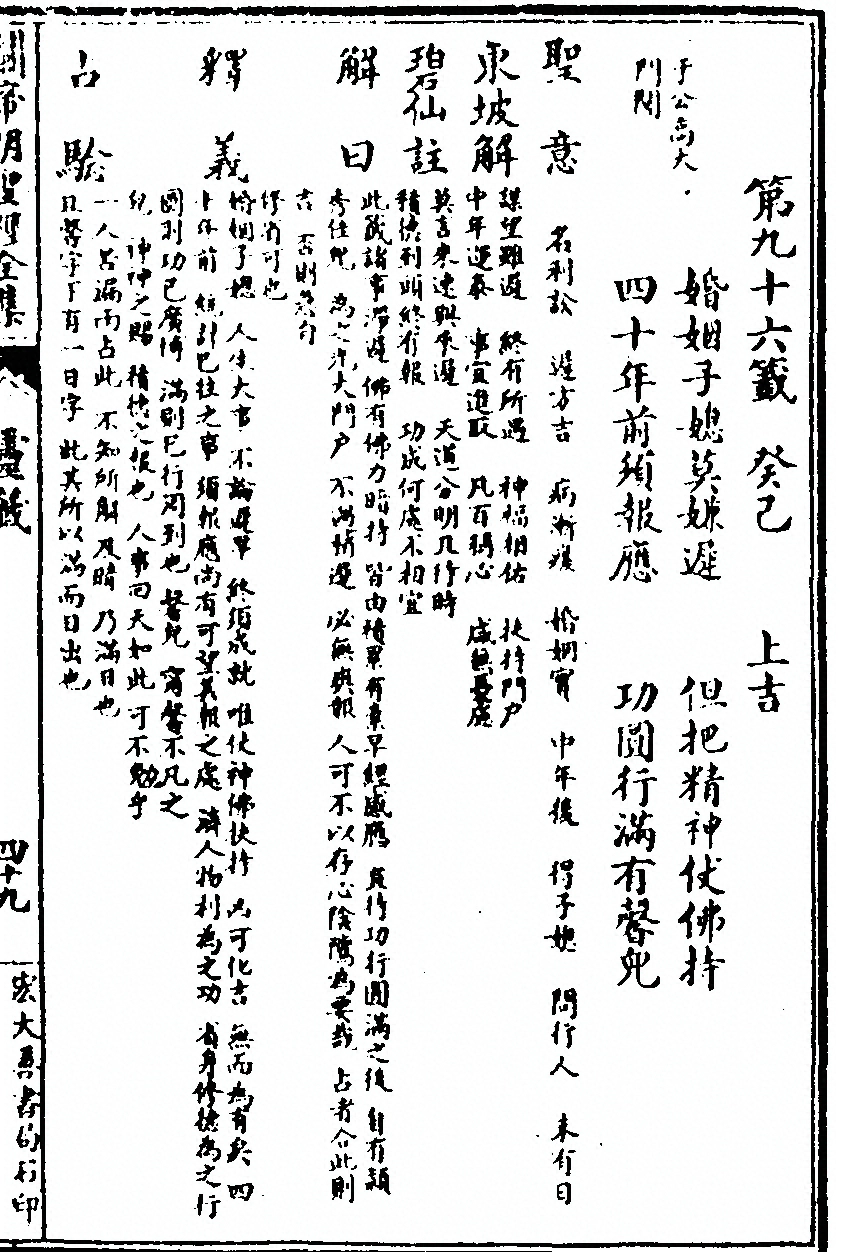 第九十六籤 癸己 上吉
于公高大
門閭
婚姻子媳莫嫌遲 但把精神仗佛持
四十年前須報應 功圓行滿有馨兒
聖意 名利訟 遲方吉 病漸痊 婚姻實 中年後 得子媳 問行人 未有日
東坡解 謀望雖遲 終有所遇 神福相佑 扶持門戶
中年運泰 事宜進取 凡百稱心 咸無憂慮
碧仙註 莫言來速與來遲 天道分明且待時
積德到頭終有報 功成何處不相宜
解曰 此籤諸事滯遲 佛有佛力暗持 皆由積累有素早經感應 與行功行圓滿之後 自有穎
秀佳兒 為之光大門戶 不滿稍遲 必無與報 人可不以存心陰隲為要哉 占者合此則
吉 否則急宜
修省可也
釋義 婚姻子媳 人生大事 不論遲早 終須成就 唯仗神佛扶持 凶可化吉 無而為有矣 四
十年前 統計已往之事 須報應尚有可望善報之處 濟人物利為之功 省身修德為之行
圓則功已廣博 滿則已行周到也 馨兒 甯馨不凡之
兒 神神之賜 積德之報也 人事回天如此 可不勉乎
占驗 一人苦漏而占此 不知所解及晴 乃滿日也
且馨字下有一日字 此其所以滿而日出也
關帝明聖經全集 靈籤 四十九 宏大善書局石印